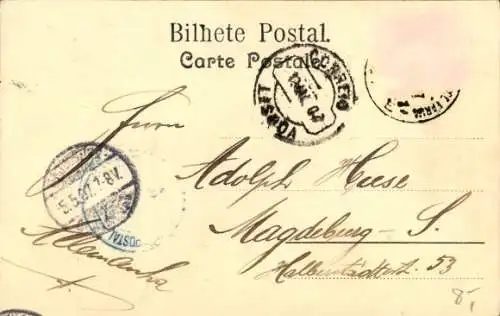 Bilhete Postal.
Carte Postale.
CORREIO
LISBOA
5.5.07.7-8V.
Herrn
Adolph Hesse
Magdeburg - S.
Halberstädterstr. 53
Allemanha